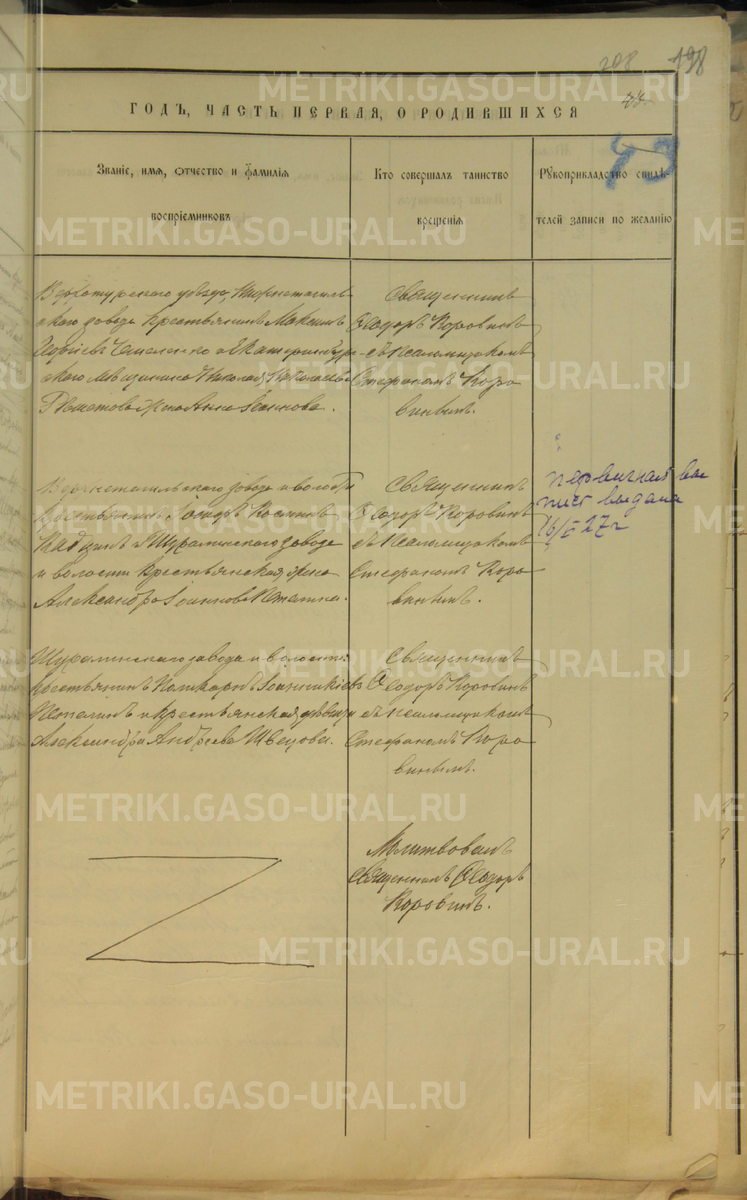 208 198
44.
ГОДЪ, ЧАСТЬ ПЕРВАЯ, О РОДИВШИХСЯ
43
Званіе, имя, отчество и фамилія
воспріемниковъ
Кто совершалъ таинство
крещенія
Рукоприкладство свидѣ-
телей записи по желанію
Верхотурскаго уѣзда, Нижнетагиль-
скаго завода крестьянинъ Максимъ
и Екатеринбург-
скаго мѣщанина Николая
жена Анна Іоаннова.
Священникъ
Ѳеодоръ Коровинъ
съ псаломщикомъ
Стефаномъ Коро
винымъ.
Верхнетагильскаго завода и волости
крестьянинъ Ѳеодоръ
и Шуралинскаго завода
и волости крестьянская жена
Александра Іоаннова
Священникъ
Ѳеодоръ Коровинъ
съ псаломщикомъ
Стефаномъ Коро
винымъ.
первичная вы
пись выдана
16/I 27 г
Шуралинскаго завода и волости
крестьянинъ Поликарпъ Іоанникіевъ
и крестьянская дѣвица
Александра Андреева Швецова.
Священникъ
Ѳеодоръ Коровинъ
съ псаломщикомъ
Стефаномъ Коро
винымъ.
Молитвовалъ
Священникъ Ѳеодоръ
Коровинъ.
METRIKI.GASO-URAL.RU